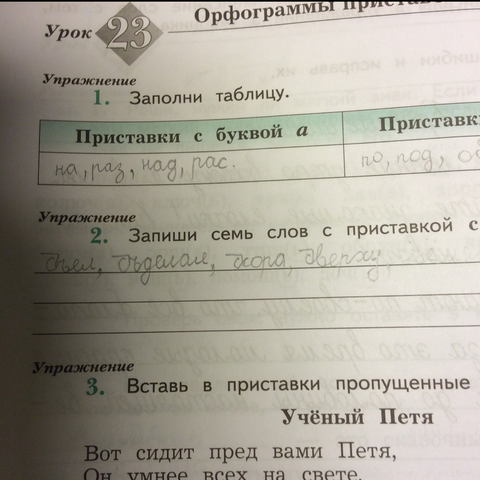 Орфограммы пристав
Урок 23
Упражнение
1. Заполни таблицу.
Приставки с буквой а Приставк
на, раз, над, рас. по, под, об
Упражнение
2. Запиши семь слов с приставкой с
Упражнение
3. Вставь в приставки пропущенные
Учёный Петя
Вот сидит пред вами Петя,
Он умнее всех на свете.